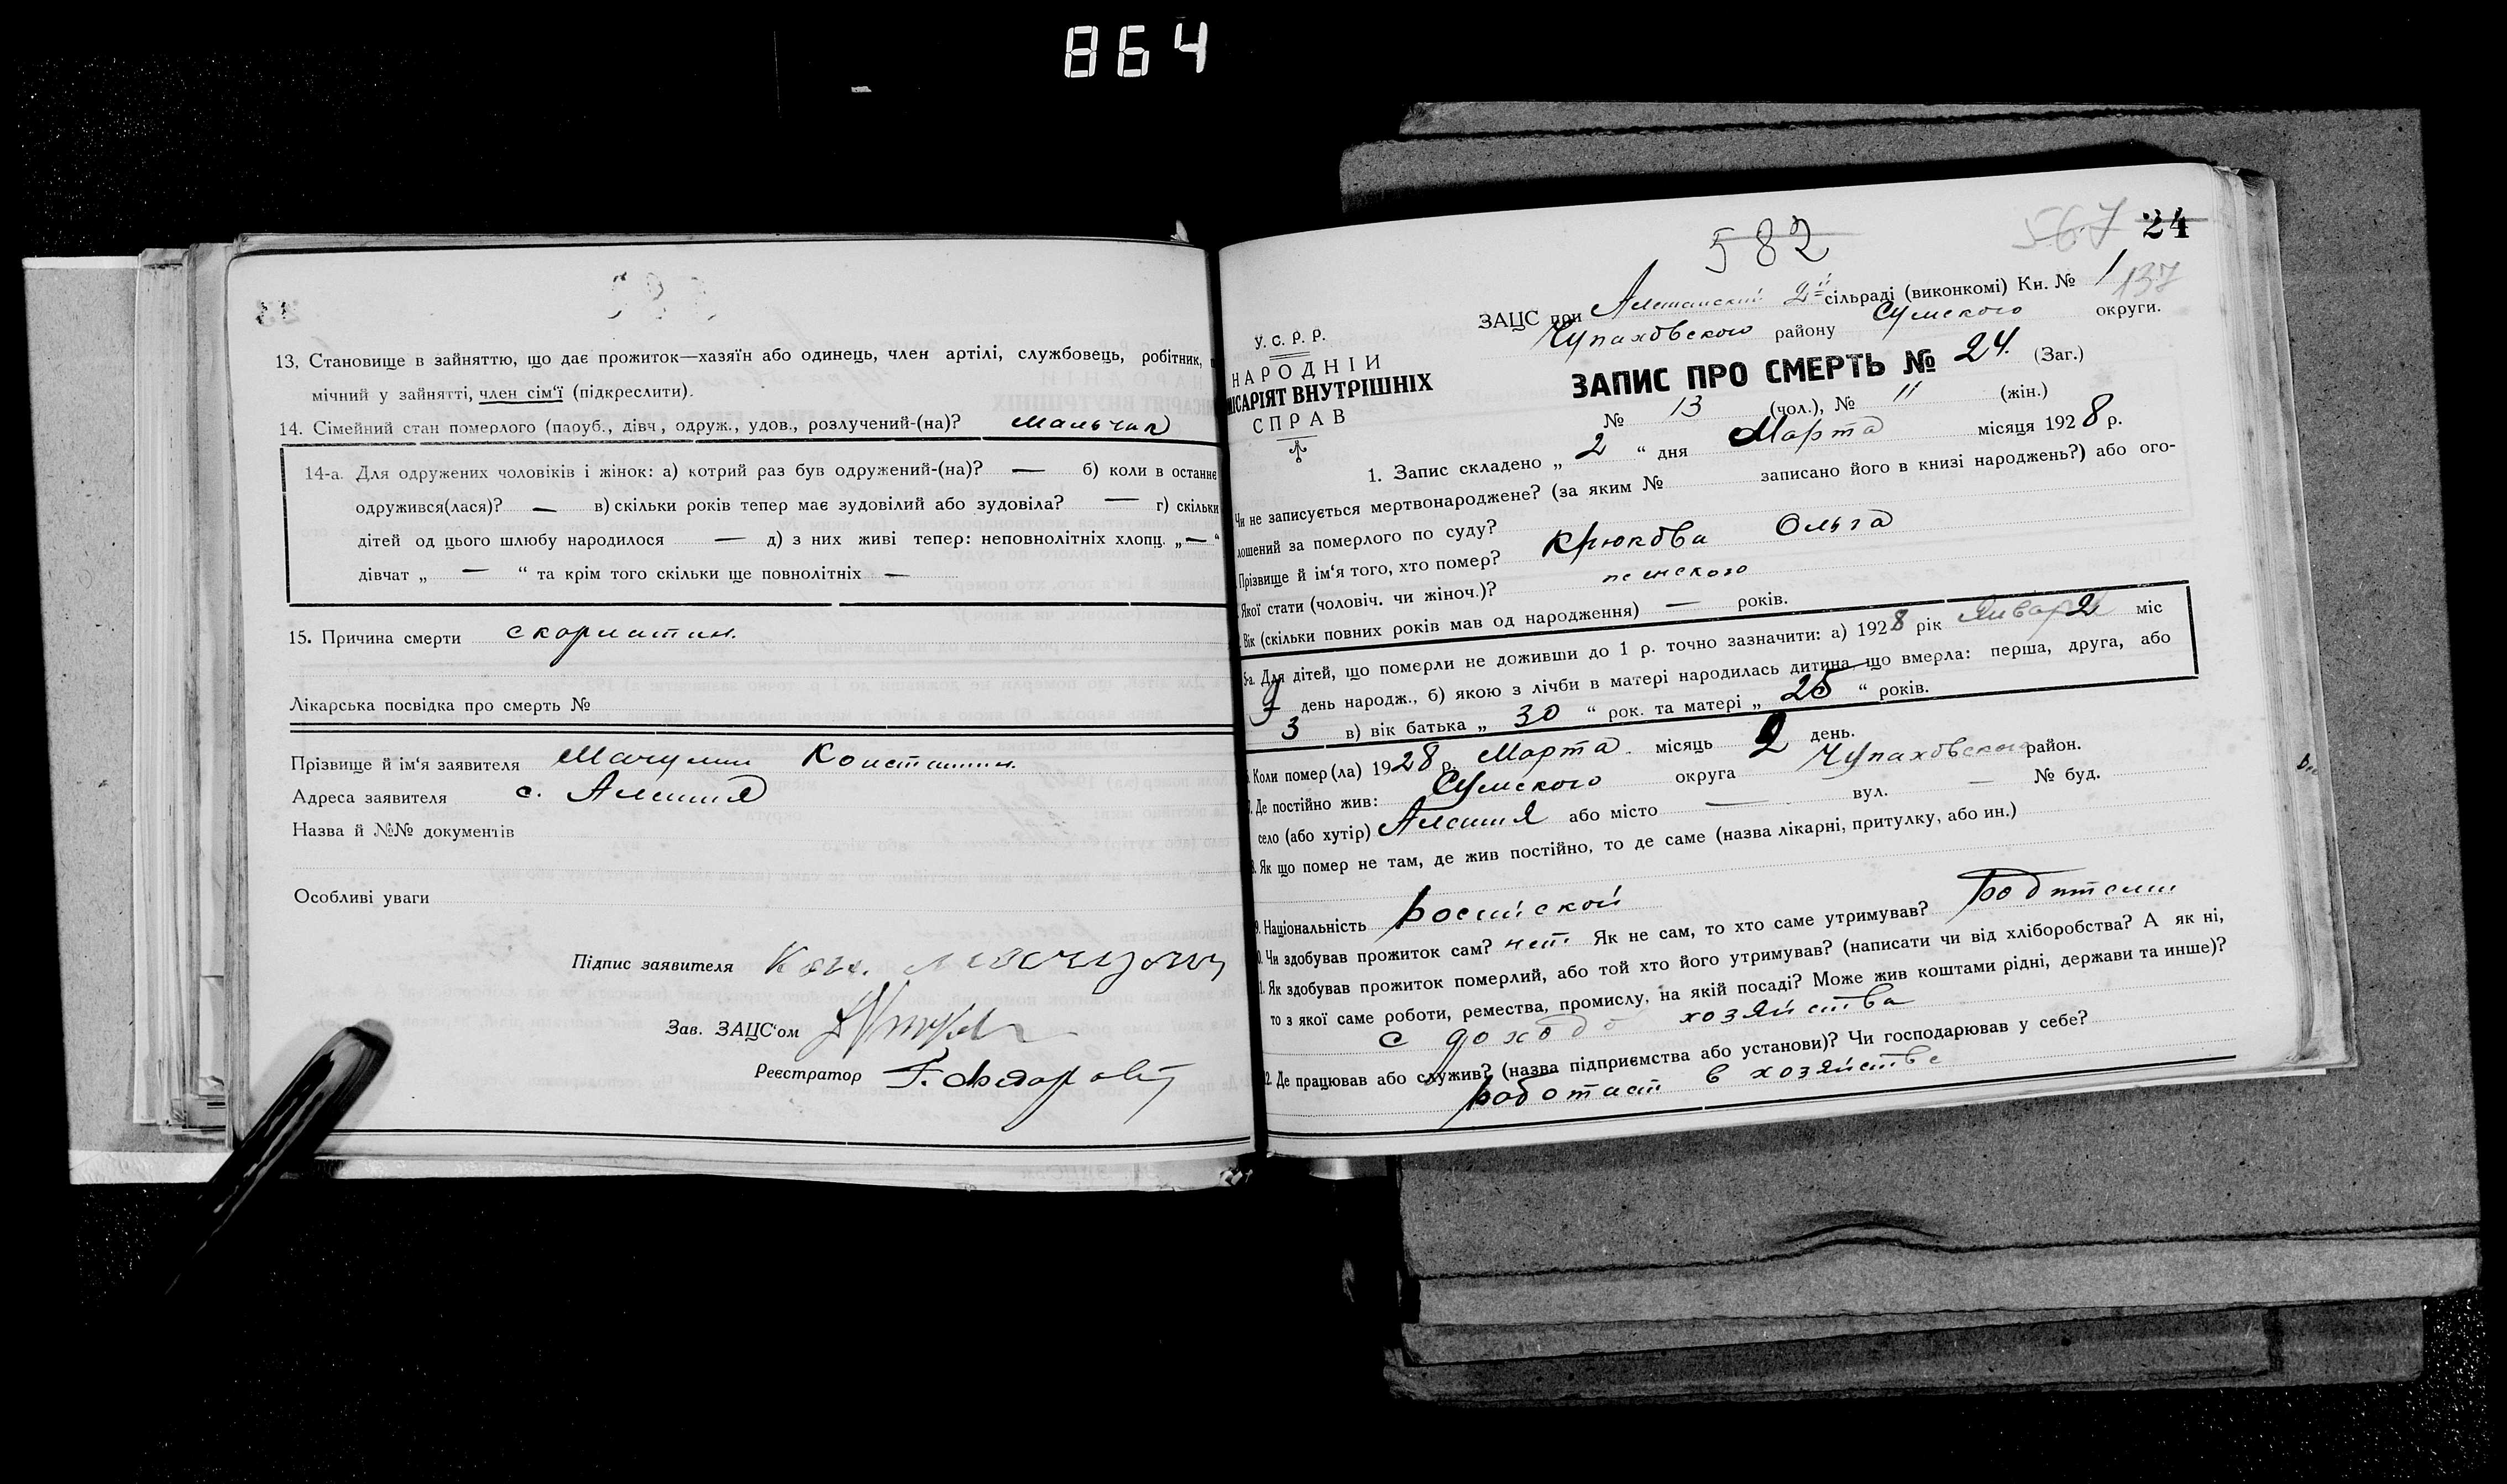 864
13. Становище в зайняттю, що дає прожиток—хазяїн або одинець, член артілі, службовець, робітник,
мічний у зайнятті, член сім'ї (підкреслити).
14. Сімейний стан померлого (пароуб., дівч, одруж., удов., розлучений-(на)? Мальчик
14-а. Для одружених чоловіків і жінок: а) котрий раз був одружений-(на)? — б) коли в останнє
одружився(лася)? — в) скільки років тепер має зудовілий або зудовіла? — г) скільки
дітей од цього шлюбу народилося — д) з них живі тепер: неповнолітніх хлопц. „—“
дівчат „ — “ та крім того скільки ще повнолітніх —
15. Причина смерти скарлатин.
Лікарська посвідка про смерть №
Прізвище й ім'я заявителя Мачулин Констанин.
Адреса заявителя с. Алешня
Назва й №№ документів
Особливі уваги
Підпис заявителя Кон.
Зав. ЗАЦС'ом
Реєстратор
582
567 24
137
ЗАЦС при Алешанский 2й сільраді (виконкомі) Кн. № 1
Чупаховского району Сумского округи.
У. С. Р. Р.
НАРОДНІЙ
МІСАРІЯТ ВНУТРІШНІХ
СПРАВ
ЗАПИС ПРО СМЕРТЬ № 24. (Заг.)
№ 13 (чол.), № 11 (жін.)
1. Запис складено „ 2 “ дня Марта місяця 1928 р.
Чи не записується мертвонароджене? (за яким № записано його в книзі народжень?) або ого-
лошений за померлого по суду?
Прізвище й ім'я того, хто помер? Крюкова Ольга
Якої стати (чоловіч. чи жіноч.)? женского
Вік (скільки повних років мав од народження) — років.
5-а. Для дітей, що померли не доживши до 1 р. точно зазначити: а) 1928 рік Январ 2 міс
день народж., б) якою з лічби в матері народилась дитина, що вмерла: перша, друга, або
3 в) вік батька „ 30 “ рок. та матері „ 25 “ років.
Коли помер(ла) 1928 р. Марта місяць 2 день.
Де постійно жив: Сумского округа Чупаховского район.
село (або хутір) Алешня або місто — вул. — № буд.
Як що помер не там, де жив постійно, то де саме (назва лікарні, притулку, або ин.)
9. Національність Росийской
0. Чи здобував прожиток сам? нет. Як не сам, то хто саме утримував? Родители
1. Як здобував прожиток померлий, або той хто його утримував? (написати чи від хліборобства? А як ні,
то з якої саме роботи, ремества, промислу, на якій посаді? Може жив коштами рідні, держави та инше)?
С доходо хозяйства
12. Де працював або служив? (назва підприємства або установи)? Чи господарював у себе?
Работает в хозяйстве